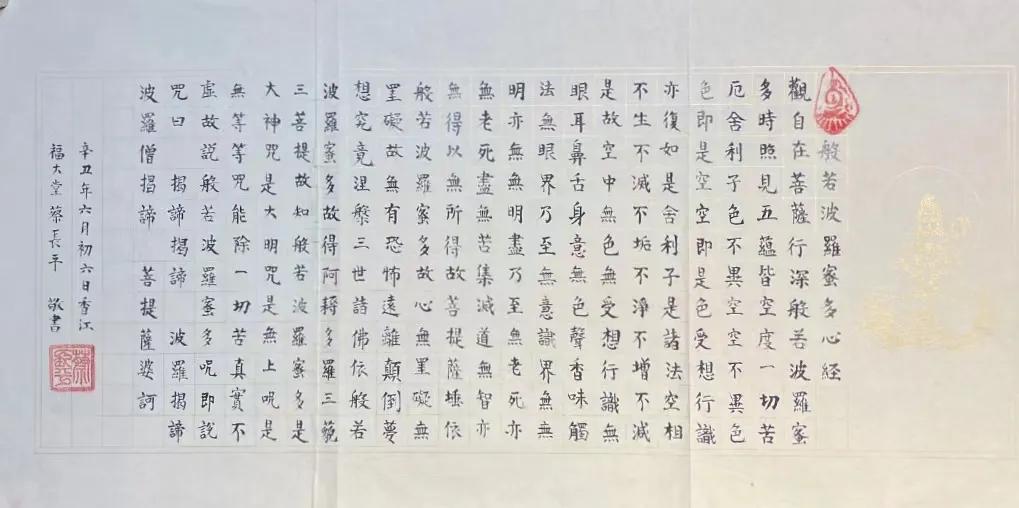 般若波羅蜜多心經
觀自在菩薩行深般若波羅蜜
多時照見五蘊皆空度一切苦
厄舍利子色不異空空不異色
色即是空空即是色受想行識
亦復如是舍利子是諸法空相
不生不滅不垢不淨不增不減
是故空中無色無受想行識無
眼耳鼻舌身意無色聲香味觸
法無眼界乃至無意識界無無
明亦無無明盡乃至無老死亦
無老死盡無苦集滅道無智亦
無得以無所得故菩提薩埵依
般若波羅蜜多故心無罣礙無
罣礙故無有恐怖遠離顛倒夢
想究竟涅槃三世諸佛依般若
波羅蜜多故得阿耨多羅三藐
三菩提故知般若波羅蜜多是
大神咒是大明咒是無上呪是
無等等咒能除一切苦真實不
虛故說般若波羅蜜多呪即說
咒曰 揭諦揭諦 波羅揭諦
波羅僧揭諦 菩提薩婆訶
辛丑年六月初六日香江
福大堂蔡長平 敬書